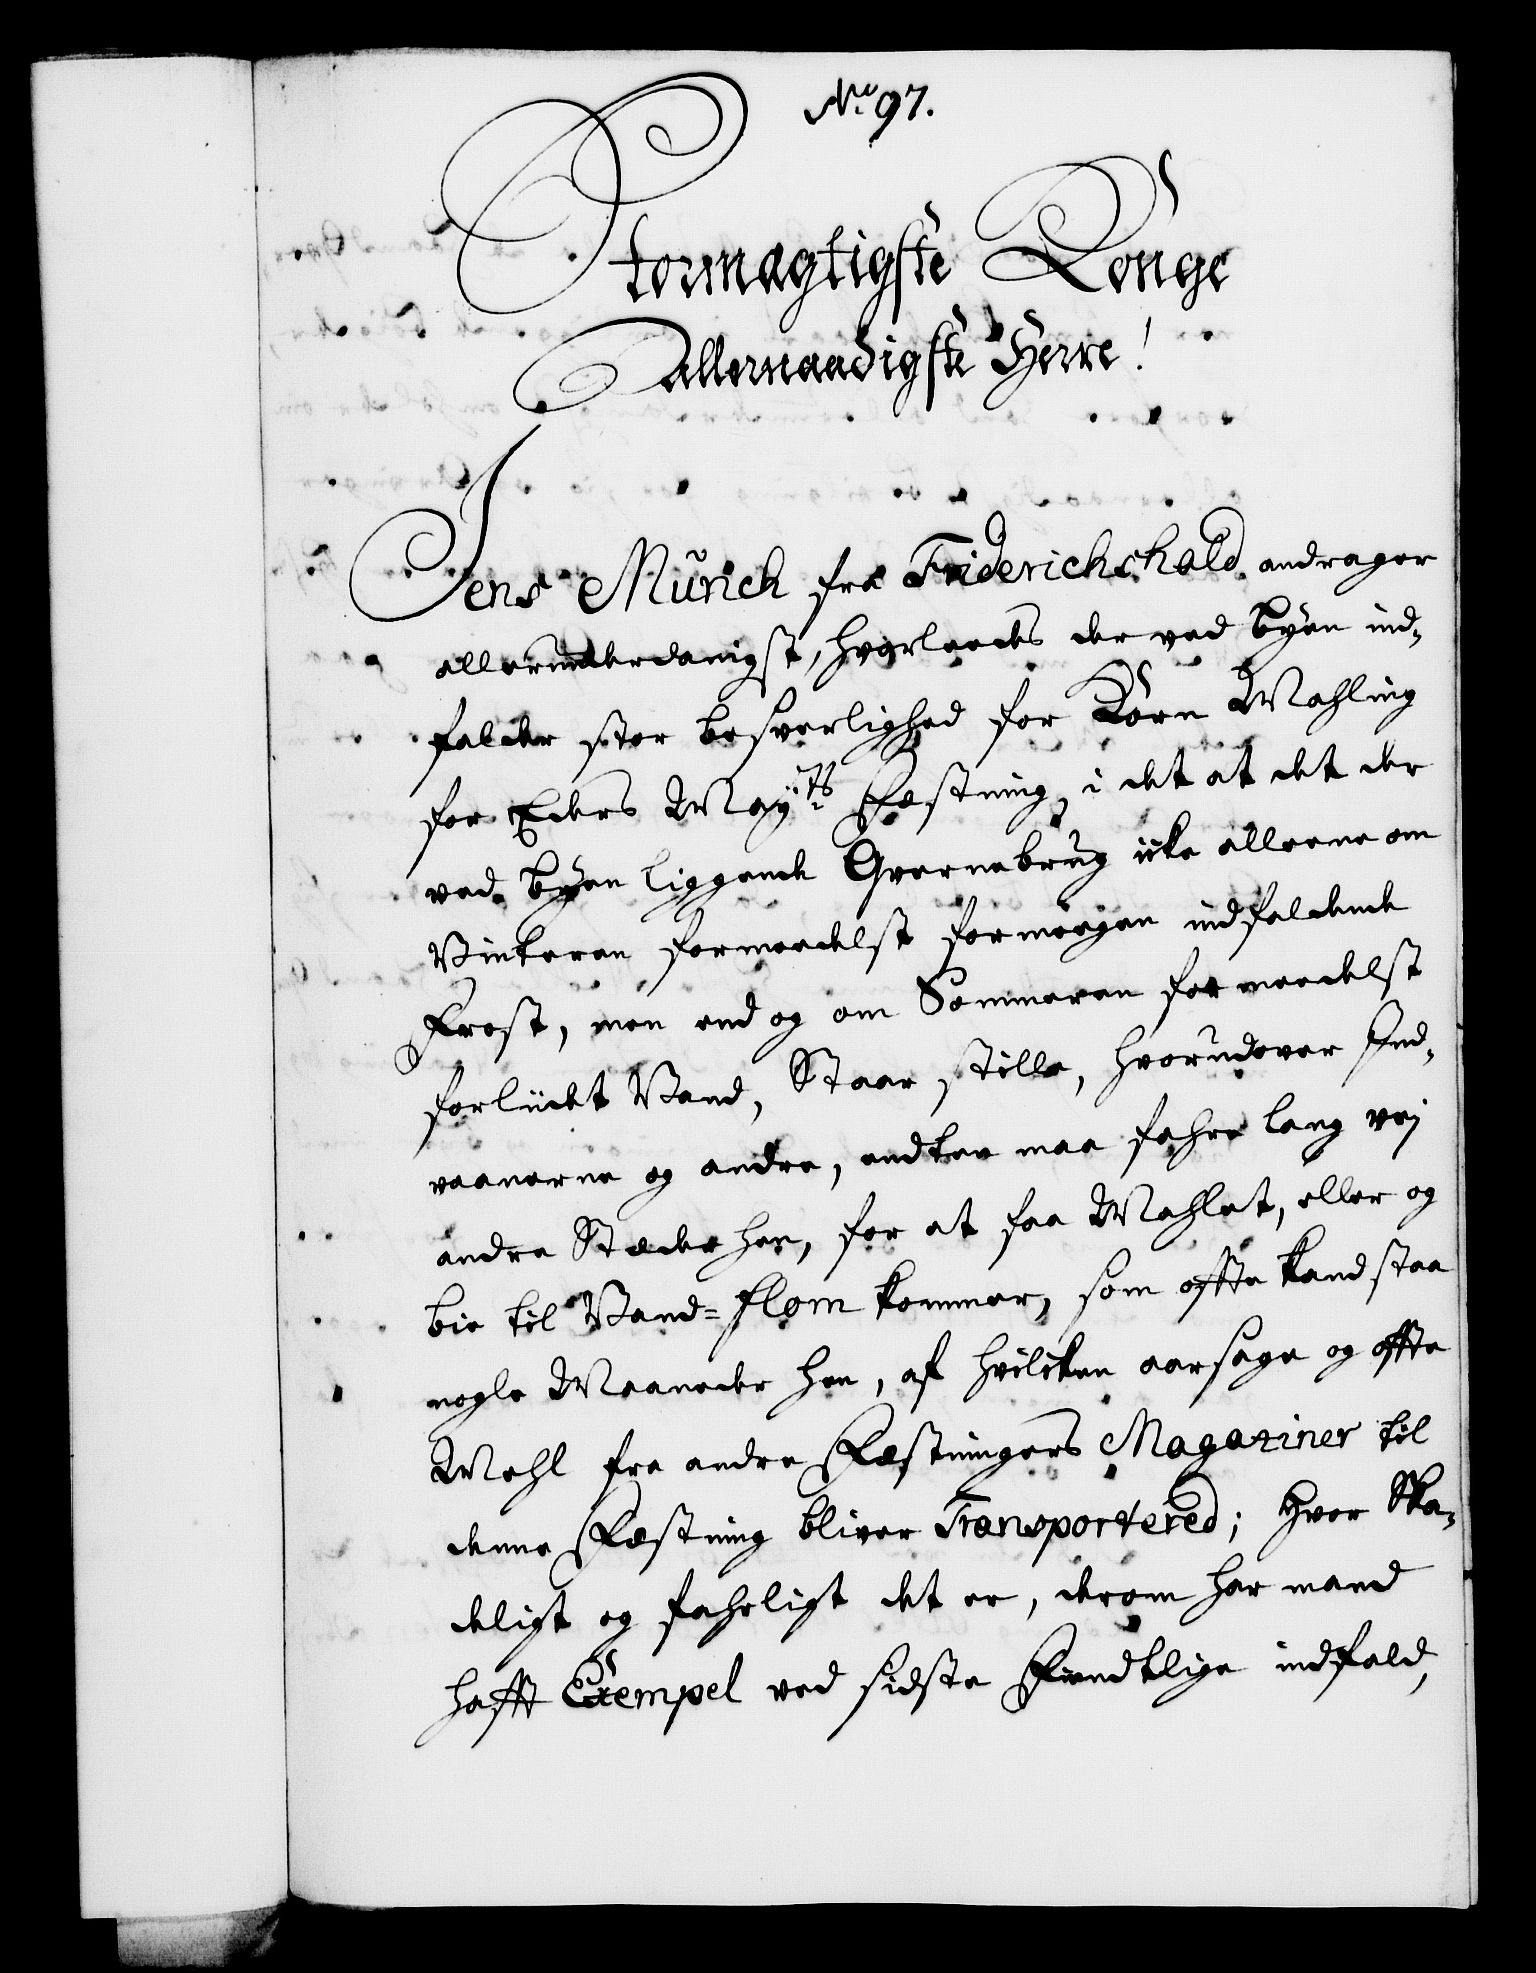 No 97.
Stormægtigste Konge
allernaadigste Herre!
Jens Munch fra Friderichshald andrager
allerunderdanigst, hvorleedes der ved Byen ind-
falder stor besverlighed for Korn Mahling
for Eders Mayts Fæstning, i det at det der
ved Byen liggende Qvernebrug icke alleene om
Vinteren formeedelst formeegen indfaldende
Frost, men end og om Sommeren formeedelst
forlidet Vand, Staar stille, hvorudover Ind-
vaanerne og andre, endten maa fahre lang vej
andre Stæder hen, for at faa Mahlet, eller og
bie til Vand-flom kommer, som offte kand staa
nogle Maaneder hen, af hvilcken aarsage og offte
Mehl fra andre Fæstningers Magaziner til
denne Fæstning bliver Transportered; Hvor Ska-
deligt og fahrligt det er, derom har mand
hafft Exempel ved sidste Fiendtlige indfald,